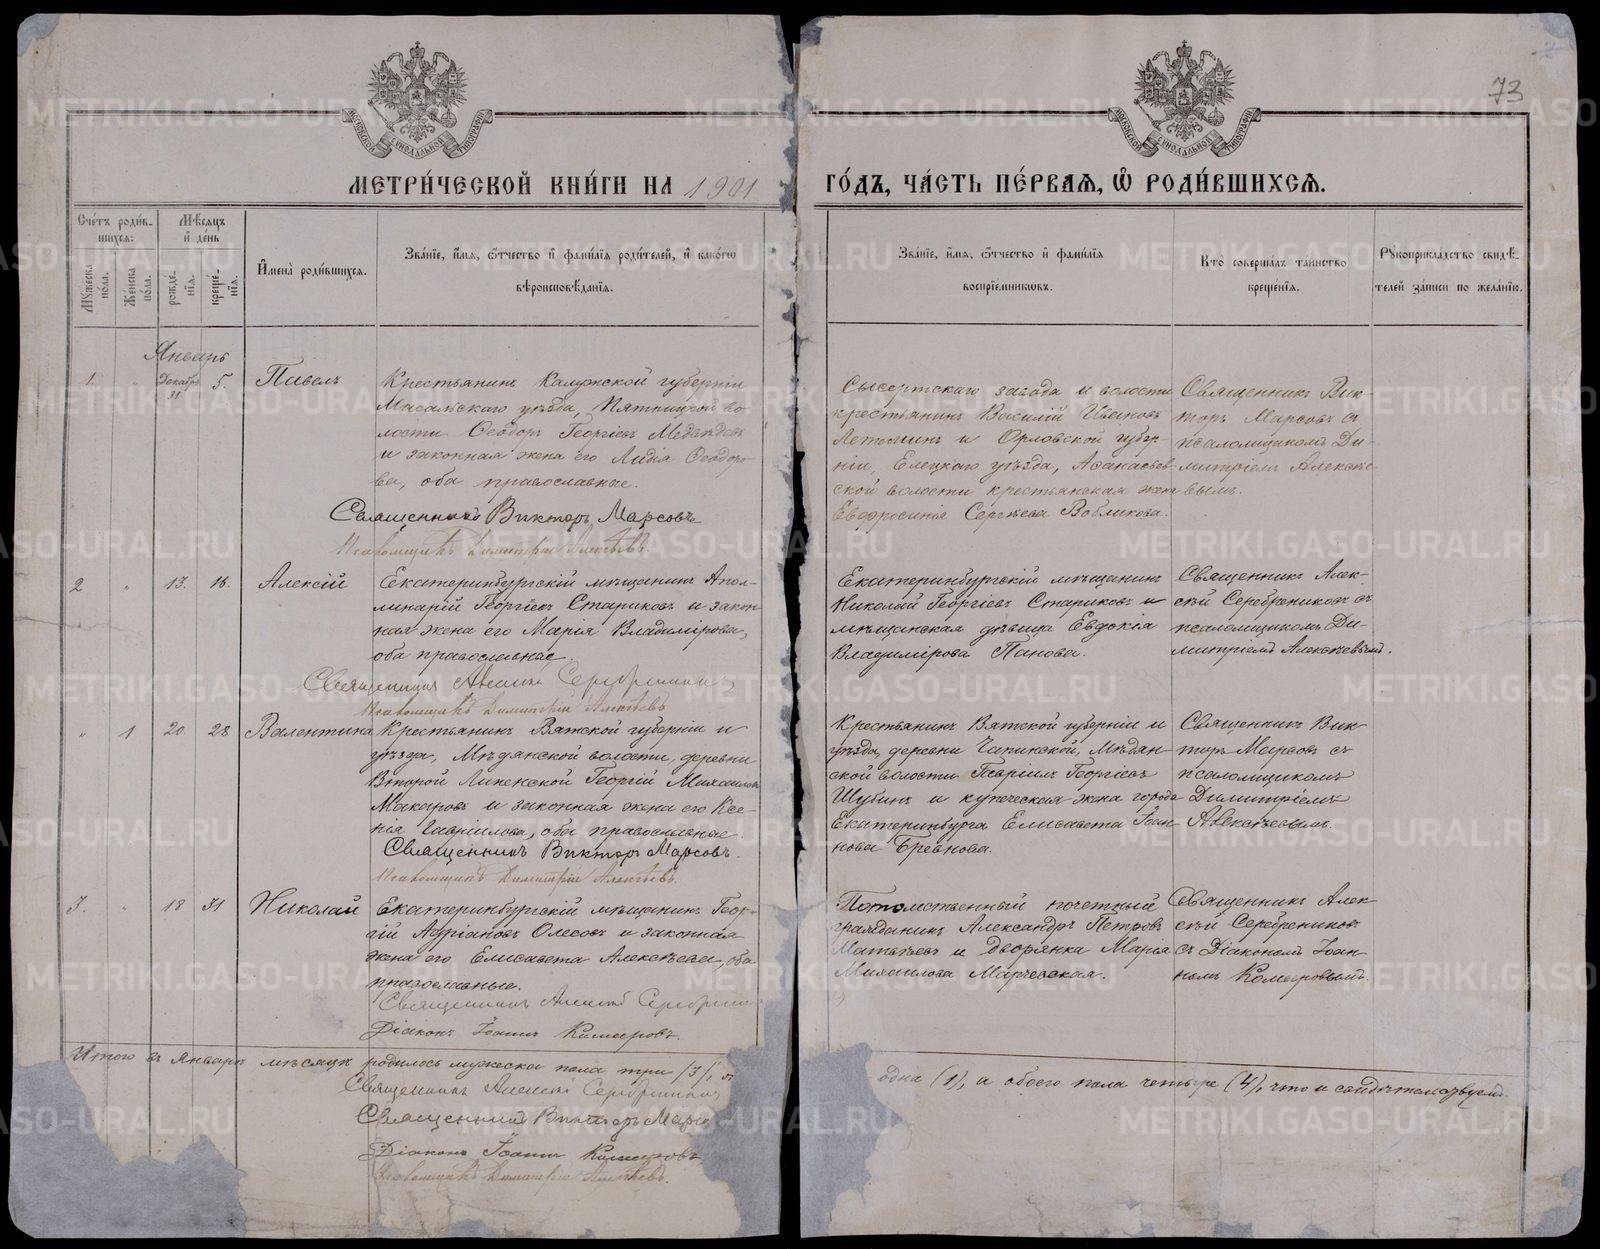 73
МОСКОВСКОЙ СѴНОДАЛЬНОЙ ТИПОГРАФІИ
МОСКОВСКОЙ СѴНОДАЛЬНОЙ ТИПОГРАФІИ
МЕТРИ́ЧЕСКОЙ КНИ́ГИ НА 1901 ГО́ДЪ, ЧА́СТЬ ПЕ́РВАЯ, Ѡ҆ РОДИ́ВШИХСЯ.
Сче́тъ роди́в-
шихся:
Мѣ́сяцъ
и҆ де́нь
Мꙋ́жеска по́ла.
Же́нска по́ла.
рожде́-
нїя.
креще́-
нїя.
И҆мена̀ роди́вшихся.
Зва́нїе, и҆́мя, ѻ҆́тчество и҆ фами́лїя роди́телей, и҆ како́гѡ
вѣроисповѣ́данїя.
Зва́нїе, и҆́мя, ѻ҆́тчество и҆ фами́лїя
воспрїе́мниковъ.
Кто̀ соверша́лъ та́инство
креще́нїя.
Рꙋкоприкла́дство свидѣ́-
телей за́писи по жела́нїю.
Январь
1. " Декабрь 31 5. Павелъ
Крестьянинъ Калужской губерніи
Масальскаго уѣзда, Пятницкой во-
лости Ѳеодоръ Георгіевъ Медвѣдевъ
и законная жена его Лидія Ѳеодоро-
ва, оба православные.
Священникъ Викторъ Марсовъ
Псаломщикъ Димитрій Алексѣевъ.
Сысертскаго завода и волости
крестьянинъ Василій Ивановъ
Летеминъ и Орловской губер-
ніи, Елецкаго уѣзда, Аѳанасьев-
ской волости крестьянская жена
Евфросинія Сергѣева Вобликова.
Священникъ Вик-
торъ Марсовъ съ
псаломщикомъ Ди-
митріемъ Алексѣе-
вымъ.
2 " 13. 16. Алексій
Екатеринбургскій мѣщанинъ Апол-
линарій Георгіевъ Стариковъ и закон-
ная жена его Марія Владимірова,
оба православные.
Священникъ Алексій Серебренниковъ
Псаломщикъ Димитрій Алексѣевъ
Екатеринбургскій мѣщанинъ
Николай Георгіевъ Стариковъ и
мѣщанская дѣвица Евдокія
Владимірова Панова.
Священникъ Алек-
сѣй Серебрениковъ съ
псаломщикомъ Ди-
митріемъ Алексѣевымъ.
" 1 20. 28 Валентина
Крестьянинъ Вятской губерніи и
уѣзда, Мѣдянской волости, деревни
Второй Георгій Михаиловъ
Макаровъ и законная жена его Ксе-
нія Гавріилова, оба православные.
Священникъ Викторъ Марсовъ.
Псаломщикъ Димитрій Алексѣевъ.
Крестьянинъ Вятской губерніи и
уѣзда, деревни Чапинской, Мѣдян-
ской волости Гавріилъ Георгіевъ
Шубинъ и купеческая жена города
Екатеринбурга Елисавета Іоан-
нова Бревнова.
Священникъ Вик-
торъ Марсовъ съ
псаломщикомъ
Димитріемъ
Алексѣевымъ.
3. " 18 31 Николай
Екатеринбургскій мѣщанинъ Геор-
гій Адріановъ Олесовъ и законная
жена его Елисавета Алексѣева, оба
православные.
Священникъ Алексій Серебренн
Діаконъ Іоаннъ Комаровъ.
Потомственный почетный
гражданинъ Александръ Петровъ
Матвѣевъ и дворянка Марія
Михаилова Марчевская.
Священникъ Алек-
сѣй Серебрениковъ
съ діакономъ Іоан-
номъ Комаровымъ.
Итого въ январѣ мѣсяцѣ родилось мужеска пола три (3),
одна (1), а обоего пола четыре (4), что и свидѣтельствуемъ
Священникъ Алексій Серебренниковъ
Священникъ Викторъ Марсо
Діаконъ Іоаннъ Комаровъ
Псаломщикъ Димитрій Алексѣевъ.
METRIKI.GASO-URAL.RU